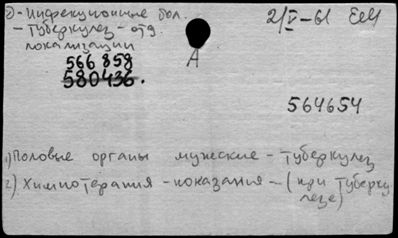 д - Инфекционные бол. 2/V-61 ЕеМ
- Туберкулез - отд.
локализации
566858
580436. А
564654
1) Половые органы мужские - туберкулез
2) Химиотерапия - показания - (при туберку
лезе)